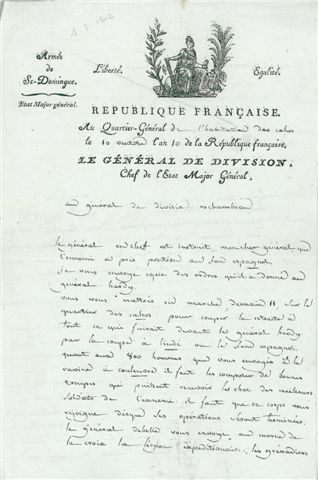 1.3.1802
Armée
de
St-Domingue.
Etat Major général.
Liberté.
Egalité.
REPUBLIQUE FRANÇAISE.
Au Quartier-Général de l'habitation des cahos
le 10 ventôse l'an 10 de la République française,
LE GÉNÉRAL DE DIVISION,
Chef de l'Etat Major Général,
au général de division rochambeau
le général en chef est instruit, mon cher général que
l'ennemi a pris position au fond espagnol
je vous envoye copie des ordres qu'il a donné au
général hardy
vous vous mettrés en marche demain 11 sur le
quartier des cahos pour couper la retraite à
tout ce qui fuirait devant le général hardy
par la coupe à l'inde ou le fond espagnol
quant aux 800 hommes que vous envoyés à la
ravine à couleuvre il faut les composer de bonnes
troupes qui puissent recevoir le choc des meilleurs
soldats de l'ennemi. il faut que ce corps vous
rejoigne dèsque ses opérations seront terminées.
le général debelle vous envoye, au morne de
la croix la légion expéditionaire, les grenadiers